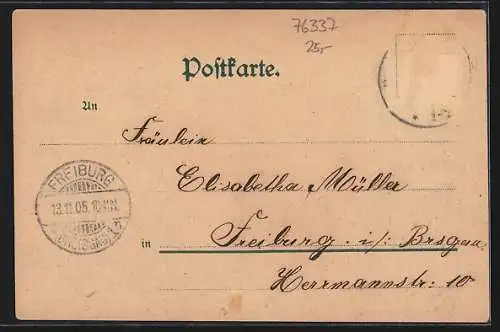 76337
25,-
Postkarte.
An
Fräulein
Elisabetha Müller
in Freiburg. i/: Brsgau.
Herrmannstr: 10
FREIBURG
13.11.05.